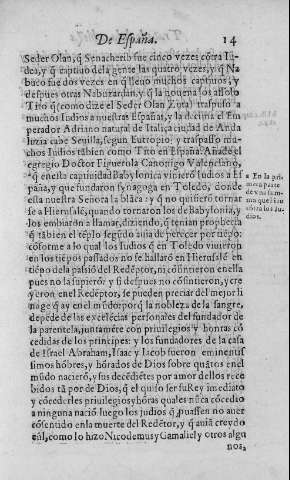 De España. 14
Seder Olan, q̃ Senacherib fue cinco vezes cõtra Iu-
dea, y q̃ captiuo dela gente las quatro vezes, y q̃ Na
buco fue dos vezes en q̃ lleuo muchos captiuos, y
despues otras Nebuzardan, y q̃ la nouena los assolo
Tito q̃ (como dize el Seder Olan Zuta) traspuso a
muchos Iudios a nuestras Españas, y la decima el Em
perador Adriano natural de Italica ciudad de Anda
luzia cabe Seuilla, segun Eutropio, y traspasso mu-
chos Iudios tãbien como Tito en España. Añade el
egregio Doctor Figuerola Canonigo Valenciano,
q̃ en esta captiuidad Babylonica vinierõ Iudios a Es
paña, y que fundaron synagoga en Toledo, donde
esta nuestra Señora la blãca: y q̃ no quisierõ tornar
se a Hierusalẽ, quando tornaron los de Babylonia, y
los embiaron a llamar, diziendo, q̃ tenian prophecia
q̃ tãbien el tẽplo segũdo auia de perecer por tiẽpo:
cõforme a lo qual los Iudios q̃ en Toledo viuieron
en los tiẽpos passados no se hallarõ en Hierusalẽ en
tiẽpo dela passiõ del Redẽptor, ni cõsintieron en ella
pues no la supierõ: y si despues no cõsintieron, y cre
yeron enel Redẽptor, se pueden preciar del mejor li
nage q̃ ay en el mũdo: porq̃ la nobleza de la sangre,
depẽde de las excelẽcias personales del fundador de
la parentela, juntamẽte con priuilegios y honras cõ
cedidas de los principes: y los fundadores de la casa
de Israel Abraham, Isaac y Iacob fueron eminentis
simos hõbres, y hõrados de Dios sobre quãtos en el
mũdo nacierõ, y sus decẽdiẽtes por amor dellos rece
bidos tã por de Dios, q̃ el quiso ser su Rey imediato
y cõcederles priuilegios y hõras quales nũca cõcedio
a ninguna naciõ luego los iudios q̃ prouassen no auer
cõsentido enla muerte del Redẽtor, y q̃ auiã creydo
enel, como lo hizo Nicodemus y Gamaliel y otros algu
nos,
a En la pri
mera parte
de vna sum-
ma que hizo
cõtra los Iu-
dios.